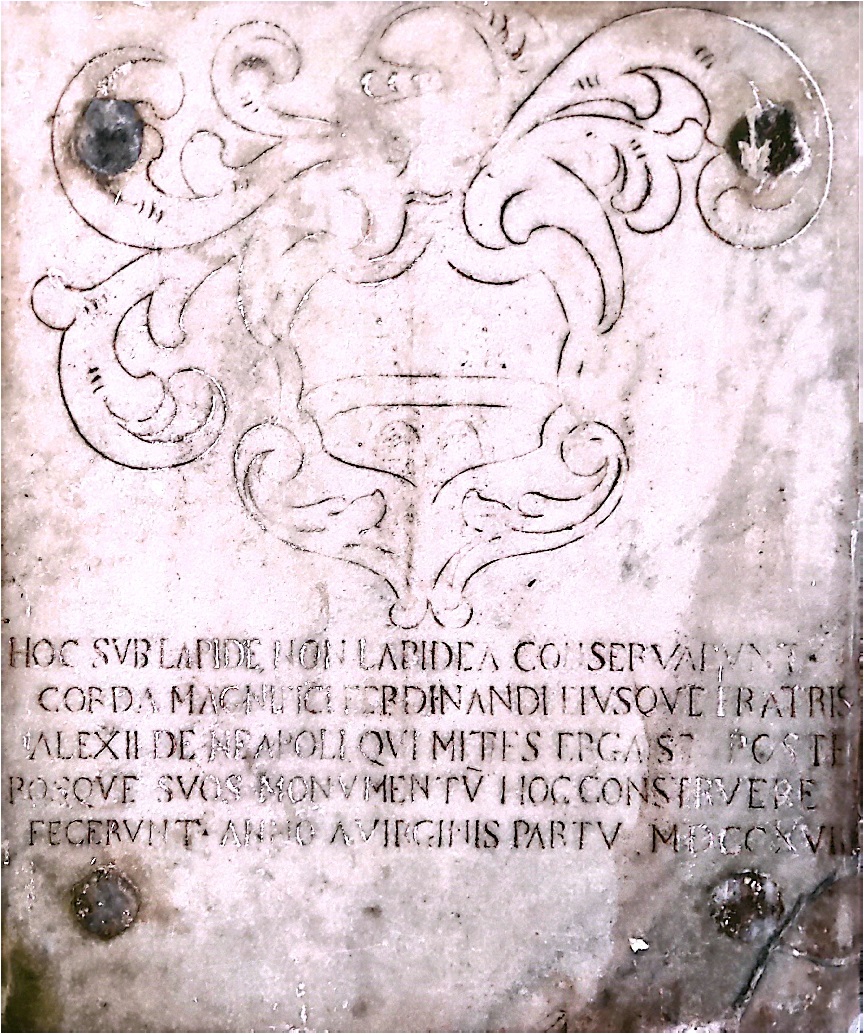 HOC SVB LAPIDE NON LAPIDEA CONSERVARVNT·
CORDA MAGNIFICI FERDINANDI EIVSQVE FRATRIS
ALEXII DE NEAPOLI QVI MITES ERGA SE POSTE
ROSQVE SVOS MONVMENTV̄ HOC CONSTRVERE
FECERVNT· ANNO A VIRGINIS PARTV